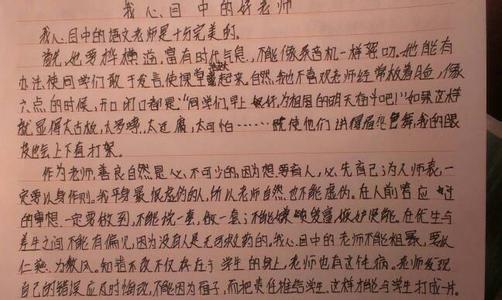 我心目中的好老师
我心目中的语文老师是十分完美的。
首先,他要桦横溢,富有时代气息,不能像录音机一样絮叨。他能有
办法使同学们敢于发言,使课堂起来。自然,我也不喜欢老师经常板着脸,像
六点的时候,开口闭口都是"同学们早上好,为祖国的明天奋斗吧!"如果这样
就显得太古板,太罗嗦,太迂腐,太可怕……使他们讲得眉飞色舞,我的眼
皮也会上下直打架。
作为老师,善良自然是必不可少的,因为想要育人,必先自己为人师表,一
定要以身作则。我平身最恨虚伪的人,所以老师自然也不能虚伪。在人前答应过
的事想一定要做到,不能说一套,做一套;不能。在优生与
差生之间不能有偏见,因为没有人是无可救药的。我心目中的老师不能粗暴,要以
仁慈为教风。知错不改不仅存在于学生的身上,老师也有这传病。老师发现
自己的错误应及时悔改,不能因为面子,而把责任推给学生,这样才能与学生打成一片。